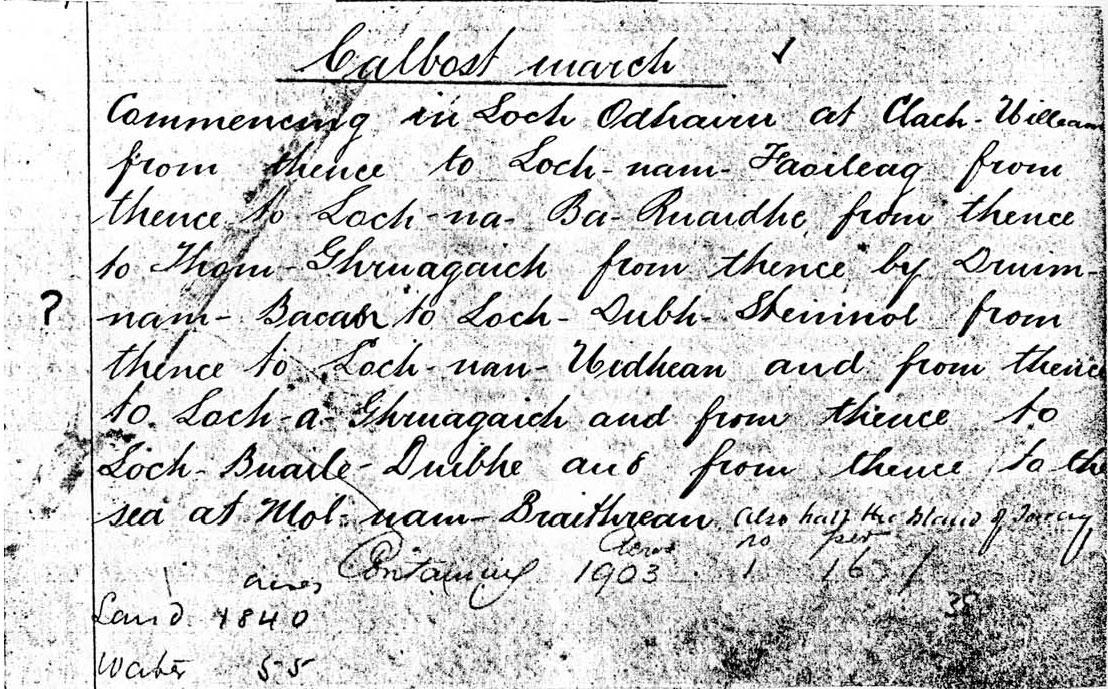 Calbost march
Commencing in Loch Odhairn at Clach-Uilleam
from thence to Loch-nam-Faoileag from
thence to Loch-na-Ba-Ruaidhe, from thence
to Thom-Ghruagaich from thence by Druim-
? nam-Bacan to Loch-Dubh-Steinnol from
thence to Loch-nan-Uidhean and from thence
to Loch-a-Ghruagaich and from thence to
Loch-Buaile-Duibhe and from thence to the
sea at Mol-nam-Braithrean also half the Island of
Acres ro per
Containing 1903 1 16
acres
Land 1840
Water 55